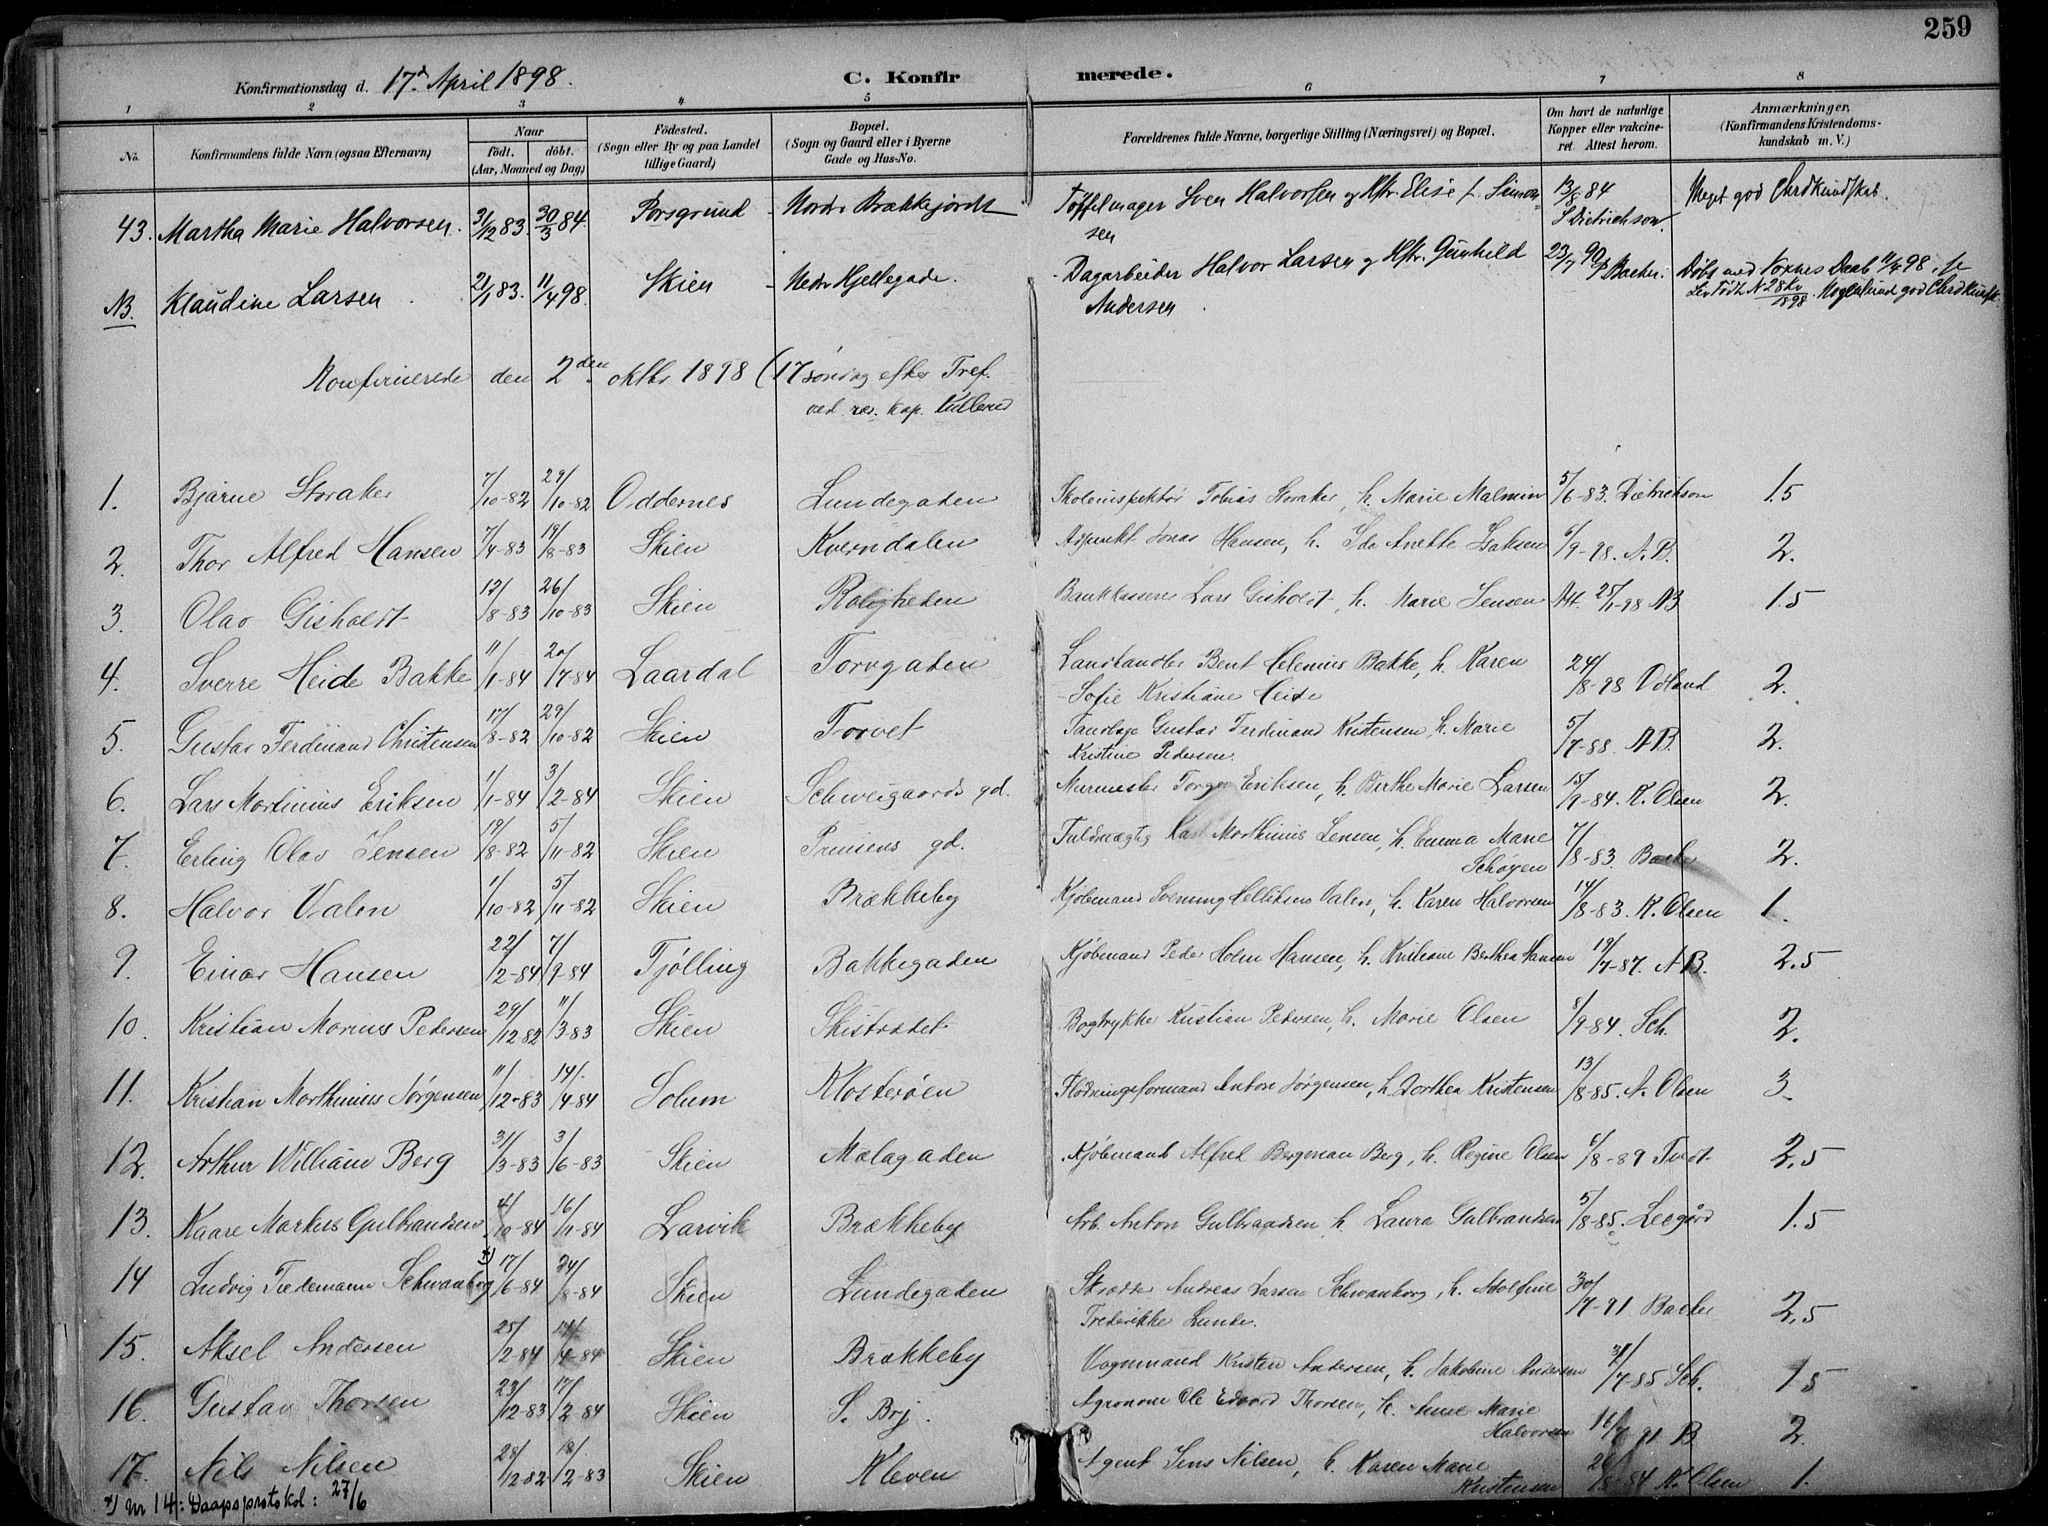 259
Konfirmationsdag d. 17d April 1898. C. Konfirmerede.
1 2 3 4 5 6 7 8
No. Konfirmandens fulde Navn (ogsaa Efternavn) Naar født. døbt. (Aar, Maaned og Dag) Fødested. (Sogn eller By og paa Landet tillige Gaard) Bopæl. (Sogn og Gaard eller i Byerne Gade og Hus-No. Forældrenes fulde Navne, borgerlige Stilling (Næringsvei) og Bopæl. Om havt de naturlige Kopper eller vakcineret. Attest herom. Anmærkninger, (Konfirmandens Kristendomskundskab m. V.)
43. Martha Marie Halvorsen. 31/12 83. 30/3 84. Porsgrund Nordr. Brekkejordet Tøffelmager Sven Halvorsen og Hstr. Elise f. Simonsen 13/8 84 S Dietrichson. Meget god Chrdkundskab.
NB. Klaudine Larsen 21/1 83. 11/4 98. Skien Nedr Hjellegade. Dagarbeider Halvor Larsen og Hstr. Gunhild Andersen 23/7 90 Backer. Døbt med Voxnes Daab 11/4 98. god
Konfirmerede den 2den oktbr 1898 (17 søndag efter Tref.
ved res. kap. Kullerud
1. Bjarne Storaker 7/10-82 29/10-82 Oddernes Lundegaden Skoleinspektør Tobias Storaker, h. Marie Malmin 5/6-83. Dietrichson 1.5
2. Thor Alfred Hansen 7/4-83 19/8-83 Skien Kverndalen Jonas Hansen, h. Ida Anette Isaksen 6/9-98. A.B. 2.
3. Olav Gisholdt 12/8-83 26/10-83 Skien Roligheden Bankkasserer Lars Gisholdt, h. Marie Jensen Att. 25/1-98 AB 1.5
4. Sverre Heide Bakke 11/1-84 20/7-84 Laardal Torvgaden Landhandler Bent Helenius Bakke, h. Karen Sofie Kristiane Heide 24/8-98 Odland 2.
5. Gustav Ferdinand Christensen 17/8-82 29/10-82 Skien Torvet Tandlæge Gustav Ferdinand Kristensen, h. Marie Kristine Pedersen. 5/7-88. AB. 2.
6. Lars Martinius Eriksen 1/1-84 3/2-84 Skien Schweigaards gd. Murmester Torger Eriksen, h. Berthe Marie Larsen 15/9-84. K. Olsen 2.
7. Erling Olav Jensen 19/8-82 5/11-82 Skien Prinsens gd. Fuldmægtig Karl Morthinius Jensen, h. Emma Marie Schøyen 7/8-83. Backer 2.
8. Halvor Valen 1/10-82 5/11-82 Skien Brækkeby Kjøbmand Svenning Helliksens Valen, h. Karen Halvorsen 14/8-83. K. Olsen 1.
9. Einar Hansen 22/2-84 7/9-84 Tjølling Bakkegaden Kjøbmand Peder Holm Hansen, h. Kristiane Berthea Hansen 19/7-87. AB. 2.5
10. Kristian Marius Pedersen 29/12 82 11/3-83 Skien Skistrædet Bogtrykker Kristian Pedersen, h. Marie Olsen 8/9-84. Sch. 2.
11. Kristian Morthinius Jørgensen 11/12-83 14/4-84 Solum Klosterøen Flødningsformand Anton Jørgensen, h. Dorthea Kristensen 13/8-85. N. Olsen 3.
12. Arthur William Berg 31/3-83 3/6-83 Skien Mælagaden Kjøbmand Alfred Bergmann Berg, h. Regine Olsen 6/8-89 Tvedt 2.5
13. Kaare Markus Gulbrandsen 4/10-84 16/11-84 Larvik Brækkeby Arb. Anton Gulbrandsen h. Laura Gulbrandsen 5/8-85. Leegård 1.5
14 Ludvig Tiedemann Schwanborg *) 17/6-84 24/8-84 Skien Lundegaden Skrædder Andreas Larsen Schwanborg, h. Adolfine Frederikke Lunde. 30/7-91 Backer 2.5
15. Aksel Andersen 25/2-84 14/4-84 Skien Brækkeby Vognmand Kristen Andersen, h. Jakobine Andersen 31/7-85 Sch. 1.5
16. Gustav Thorsen 23/12-83 17/2-84 Skien S. Brj. Agronom Ole Edvard Thorsen, h. Anne Marie Halvorsen 91 B 2.
17. Nils Nilsen 28/12-82 18/2-83 Skien Kleven Agent Jens Nilsen, h. Karen Marie Kristensen 26/8-84 K. Olsen 1.
*) Nr 14: Daapsprotokol: 27/6